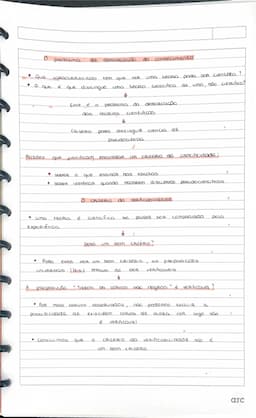 O problema da demarcação do conhecimento
• Que características tem que ter uma teoria para ser científica?
• O que é que distingue uma teoria científica de uma não científica?
Este é o problema da demarcação
das teorias científicas
Critério para distinguir ciência de
pseudociência
Razões que justificam encontrar um critério de cientificidade:
• saber o que ensinar nas escolas
• saber identificar quando estamos discursos pseudocientíficos
O critério da verificabilidade
• Uma teoria é científica se puder ser comprovada pela
experiência.
Será um bom critério?
• Para este ser um bom critério, as proposições
universais teriam de ser verificáveis
A proposição "Todos os corvos são negros" é verificável?
• Por mais corvos observados, não podemos excluir a
possibilidade de existirem corvos de outra cor logo não
é verificável
• Concluímos que o critério da verificabilidade não é
um bom critério
arc